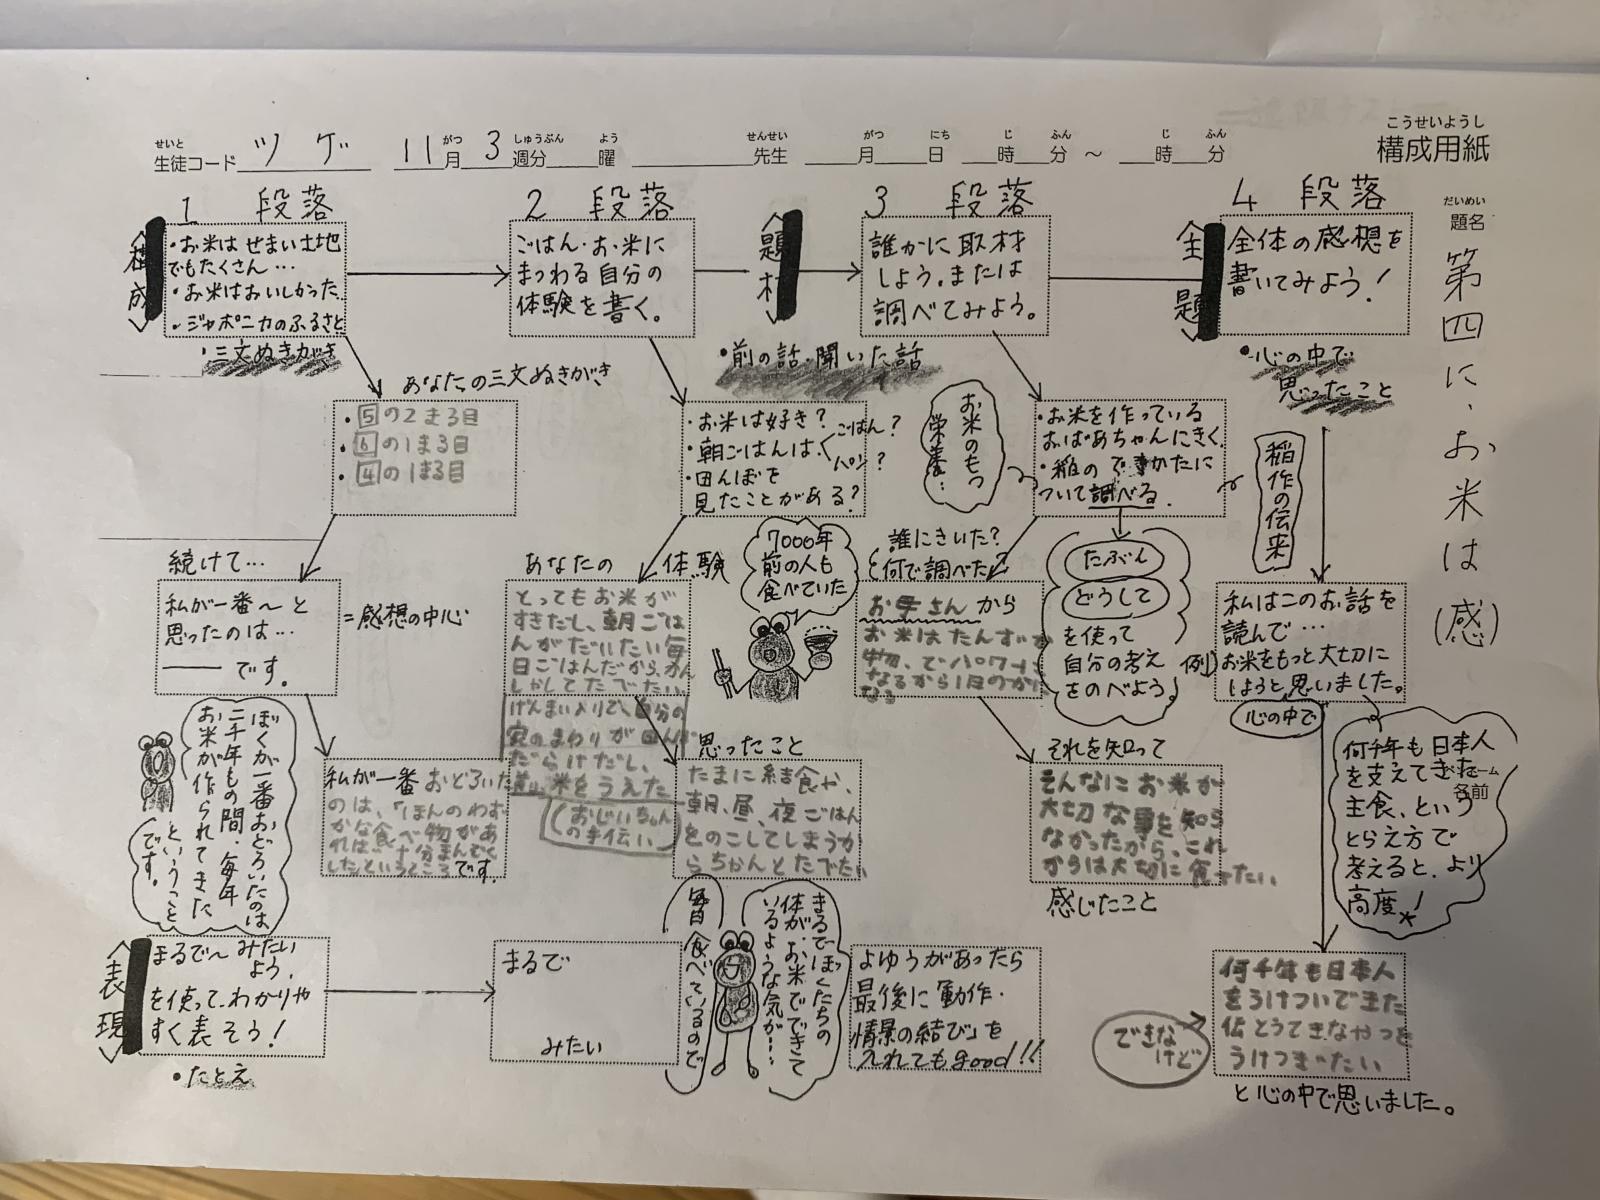 こうせいようし
構成用紙
せいと
生徒コード ツゲ 11月 3週分 曜 先生 月 日 時 分 ～ 時 分
がつ しゅうぶん よう せんせい がつ にち じ ふん じ ふん
だいめい
題名
第四に、お米は(感)
1 段落
<構成>
・お米はせまい土地
でもたくさん…
・お米はおいしかった
・ジャポニカのふるさと
・三文ぬきがき
あなたの三文ぬきがき
・5の2まる目
・6の1まる目
・4の1まる目
続けて…
私が一番～と
思ったのは…
―― です。
=感想の中心
ぼくが一番おどろいたのは
二千年もの間、毎年
お米が作られてきた
ということ
です。
私が一番おどろいた
のは、「ほんのわず
かな食べ物があ
れば十分まんぞく
したというところです。
<表現>
まるで～みたい
よう、
を使って、わかりや
すく表そう!
・たとえ
2 段落
ごはん・お米に
まつわる自分の
体験を書く。
・お米は好き?
・朝ごはんは<ごはん?
パン?
・田んぼを
見たことがある?
あなたの体験
とってもお米が
すきだし、朝ごは
んがだいたい毎
日ごはんだから、かん
しゃしてたべたい。
げんまい入りで、自分の
家のまわりが田んぼ
だらけだし、
前、米をうえた
(おじいちゃん
の手伝い)
7000年
前の人も
食べていた
思ったこと
たまに給食や、
朝、昼、夜ごはん
をのこしてしまうか
らちゃんとたべたい
まるで
みたい
毎日食べているので
まるでぼくたちの
体が、お米でできて
いるような気が…
<題材>
・前の話・聞いた話
3 段落
誰かに取材
しよう。または
調べてみよう。
お米のもつ
栄養…
・お米を作っている
おばあちゃんにきく。
・稲のできかたに
ついて調べる。
誰にきいた?
何で調べた?
お母さんから
お米はたんすいか
物、でパワーに
なるから1日のかて
なる
たぶん
どうして
を使って
自分の考え
をのべよう。
それを知って
そんなにお米が
大切な事を知ら
なかったから、これ
からは大切に食べたい。
感じたこと
よゆうがあったら
最後に「動作・
情景の結び」を
入れてもgood!!
<全題>
4 段落
全体の感想を
書いてみよう!
・心の中で
思ったこと
稲作の伝来
例)
私はこのお話を
読んで…
お米をもっと大切に
しようと思いました。
心の中で
何千年も日本人
を支えてきた
主食、という
とらえ方で
考えると、より
高度!
ーム
名前
何千年も日本人
をうけついできた
伝とうてきなやつを
うけつぎたい
できな
けど
と心の中で思いました。